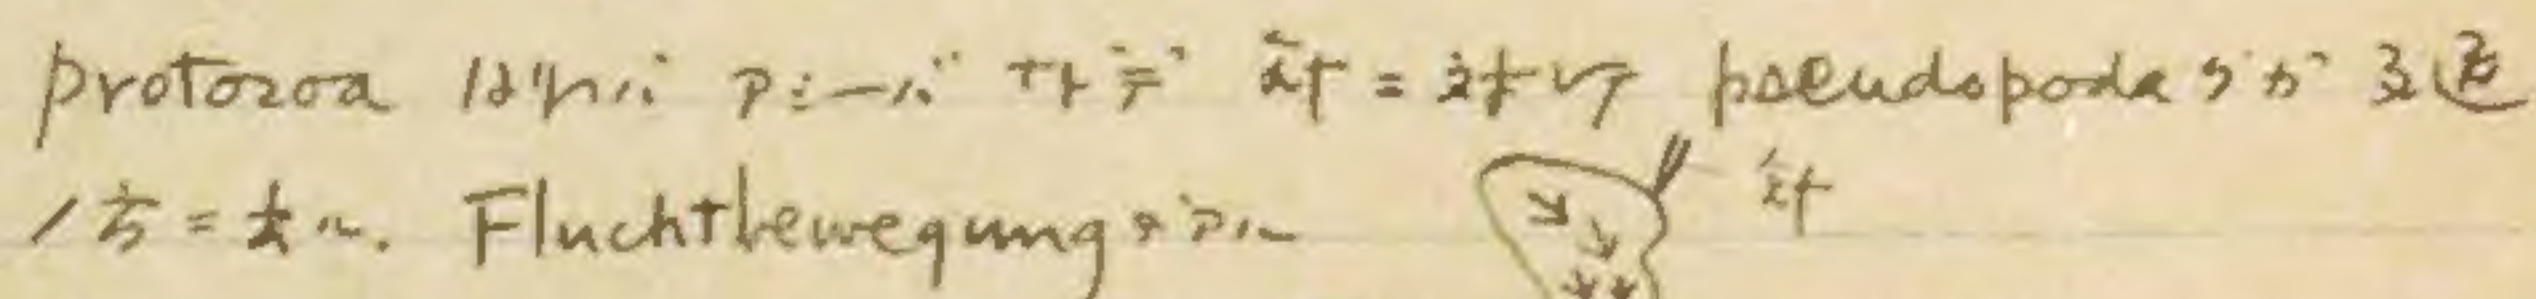 protozoa 例ヘバ アミーバ ナドデ 針ニ対シテ pseudopoda
ノ方ニ Fluchtbewegung デアル
針